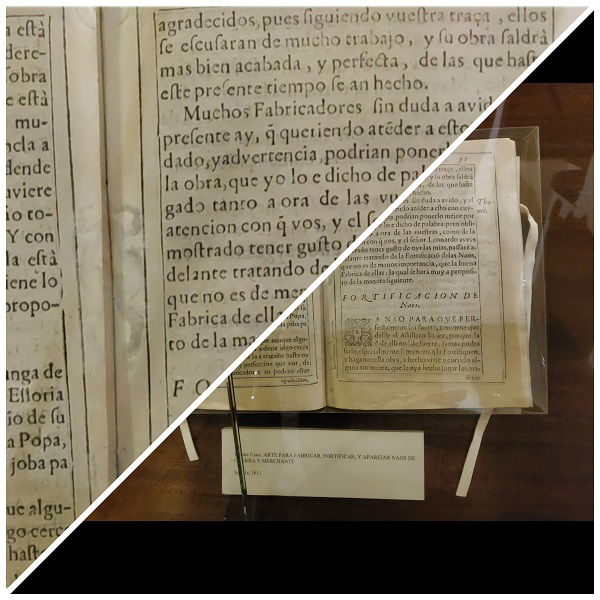 a està
dere-
ſobra
e està
mu-
ncla a
dende
uviere
ào to-
Y con
la està
tiene lo
propo-
anga de
Eſſoria
io de ſu
a Popa,
joba pa
ue algu-
go cerc
haſt
agradecidos, pues ſiguiendo vueſtra traça, ellos
ſe eſcuſaran de mucho trabajo, y ſu obra ſaldrà
mas bien acabada, y perfecta, de las que haſt
eſte preſente tiempo ſe an hecho.
Muchos Fabricadores ſin duda a avid
preſente ay, q̃ queriendo atẽder a eſto
dado, y advertencia, podrian ponerl
la obra, que yo lo e dicho de pala
gado tanto a ora de las vue
atencion con q̃ vos, y el ſe
moſtrado tener guſto d
delante tratando de
que no es de men
Fabrica de ella
to de la ma
F O
traça, ellos
y ſu obra ſaldrà
, de las que haſta
hecho.
ſin duda a avido, y al
atẽder a eſto con cuy-
podrian ponerlo mejor por
lo e dicho de palabra: pero obli-
a ora de las vueſtras, como de la
con q̃ vos, y el ſeñor Leonardo aveis
tener guſto de oyr las mias, paſſarè a-
delante tratando de la Fortificaciõ de las Naos,
que no es de menos importancia, que la buena
Fabrica de ellas: la qual ſe harà muy a propoſi-
to de la manera ſiguiente.
FORTIFICACION DE
Naos.
LA NAO PARA QUE PER-
fectamente ſea fuerte, conviene que
deſde el Aſtillero lo ſea; porque ſa
de alli no ſale fuerte, jamas podra
ſerlo, eſpecialmente ſi primero q̃ la Fortifiquen,
y hagan en ella obra, ſe hecho viſte y corrido al-
gina tormenta, que le aya hecho jugar las ma-
deras
Tho
mè.
Popa,
joba pa
aunque algu-
a dezir algo cerca
a è tratado haſta oy
y perfeccion que vos, de
de ellos os podran eſtar
agradecidos,
omé Cano. ARTE PARA FABRICAR, FORTIFICAR, Y APAREJAR NAOS DE
GUERRA Y MERCHANTE
Sevilla, 1611